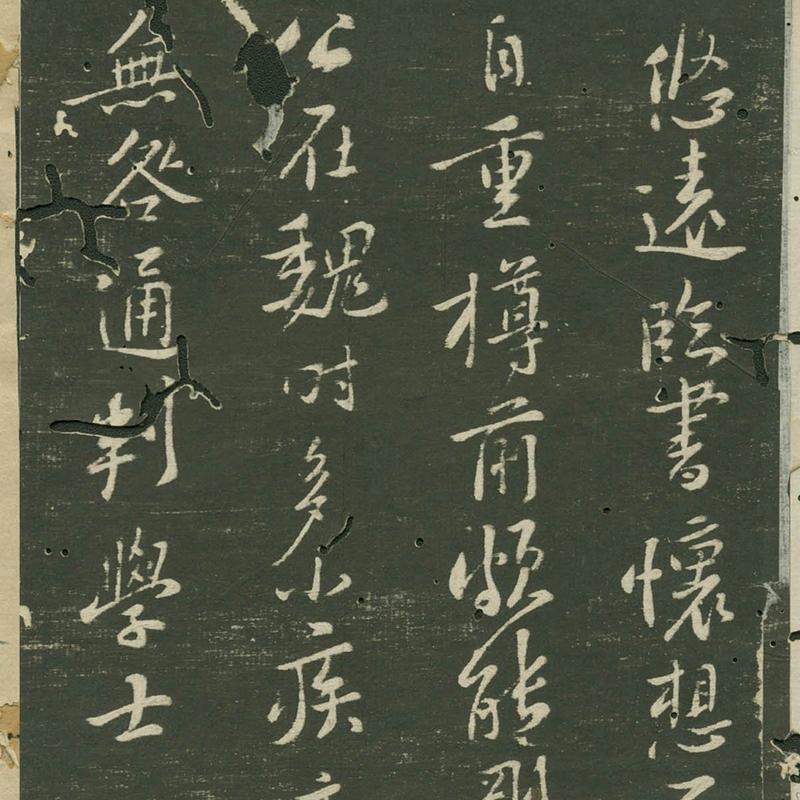 悠遠臨書懷想
自重樽前頗能
公在魏時多小疾
無咎通判學士